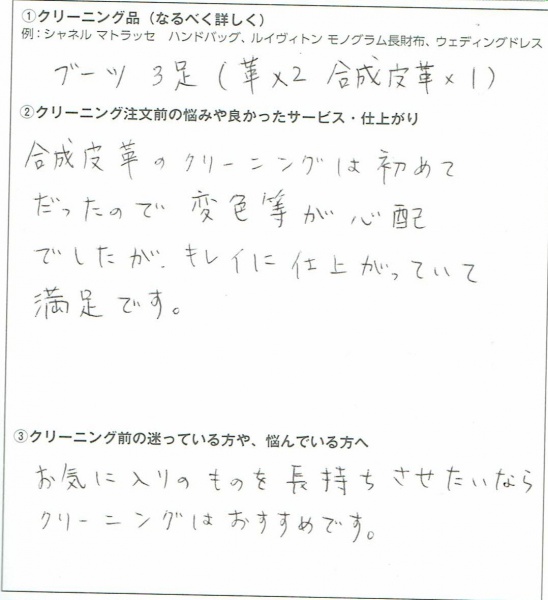 ①クリーニング品（なるべく詳しく）
例：シャネル マトラッセ　ハンドバッグ、ルイヴィトン モノグラム長財布、ウェディングドレス
ブーツ 3足（革×2 合成皮革×1）
②クリーニング注文前の悩みや良かったサービス・仕上がり
合成皮革のクリーニングは初めて
だったので 変色等が心配
でしたが、キレイに仕上がっていて
満足です。
③クリーニング前の迷っている方や、悩んでいる方へ
お気に入りのものを長持ちさせたいなら
クリーニングはおすすめです。